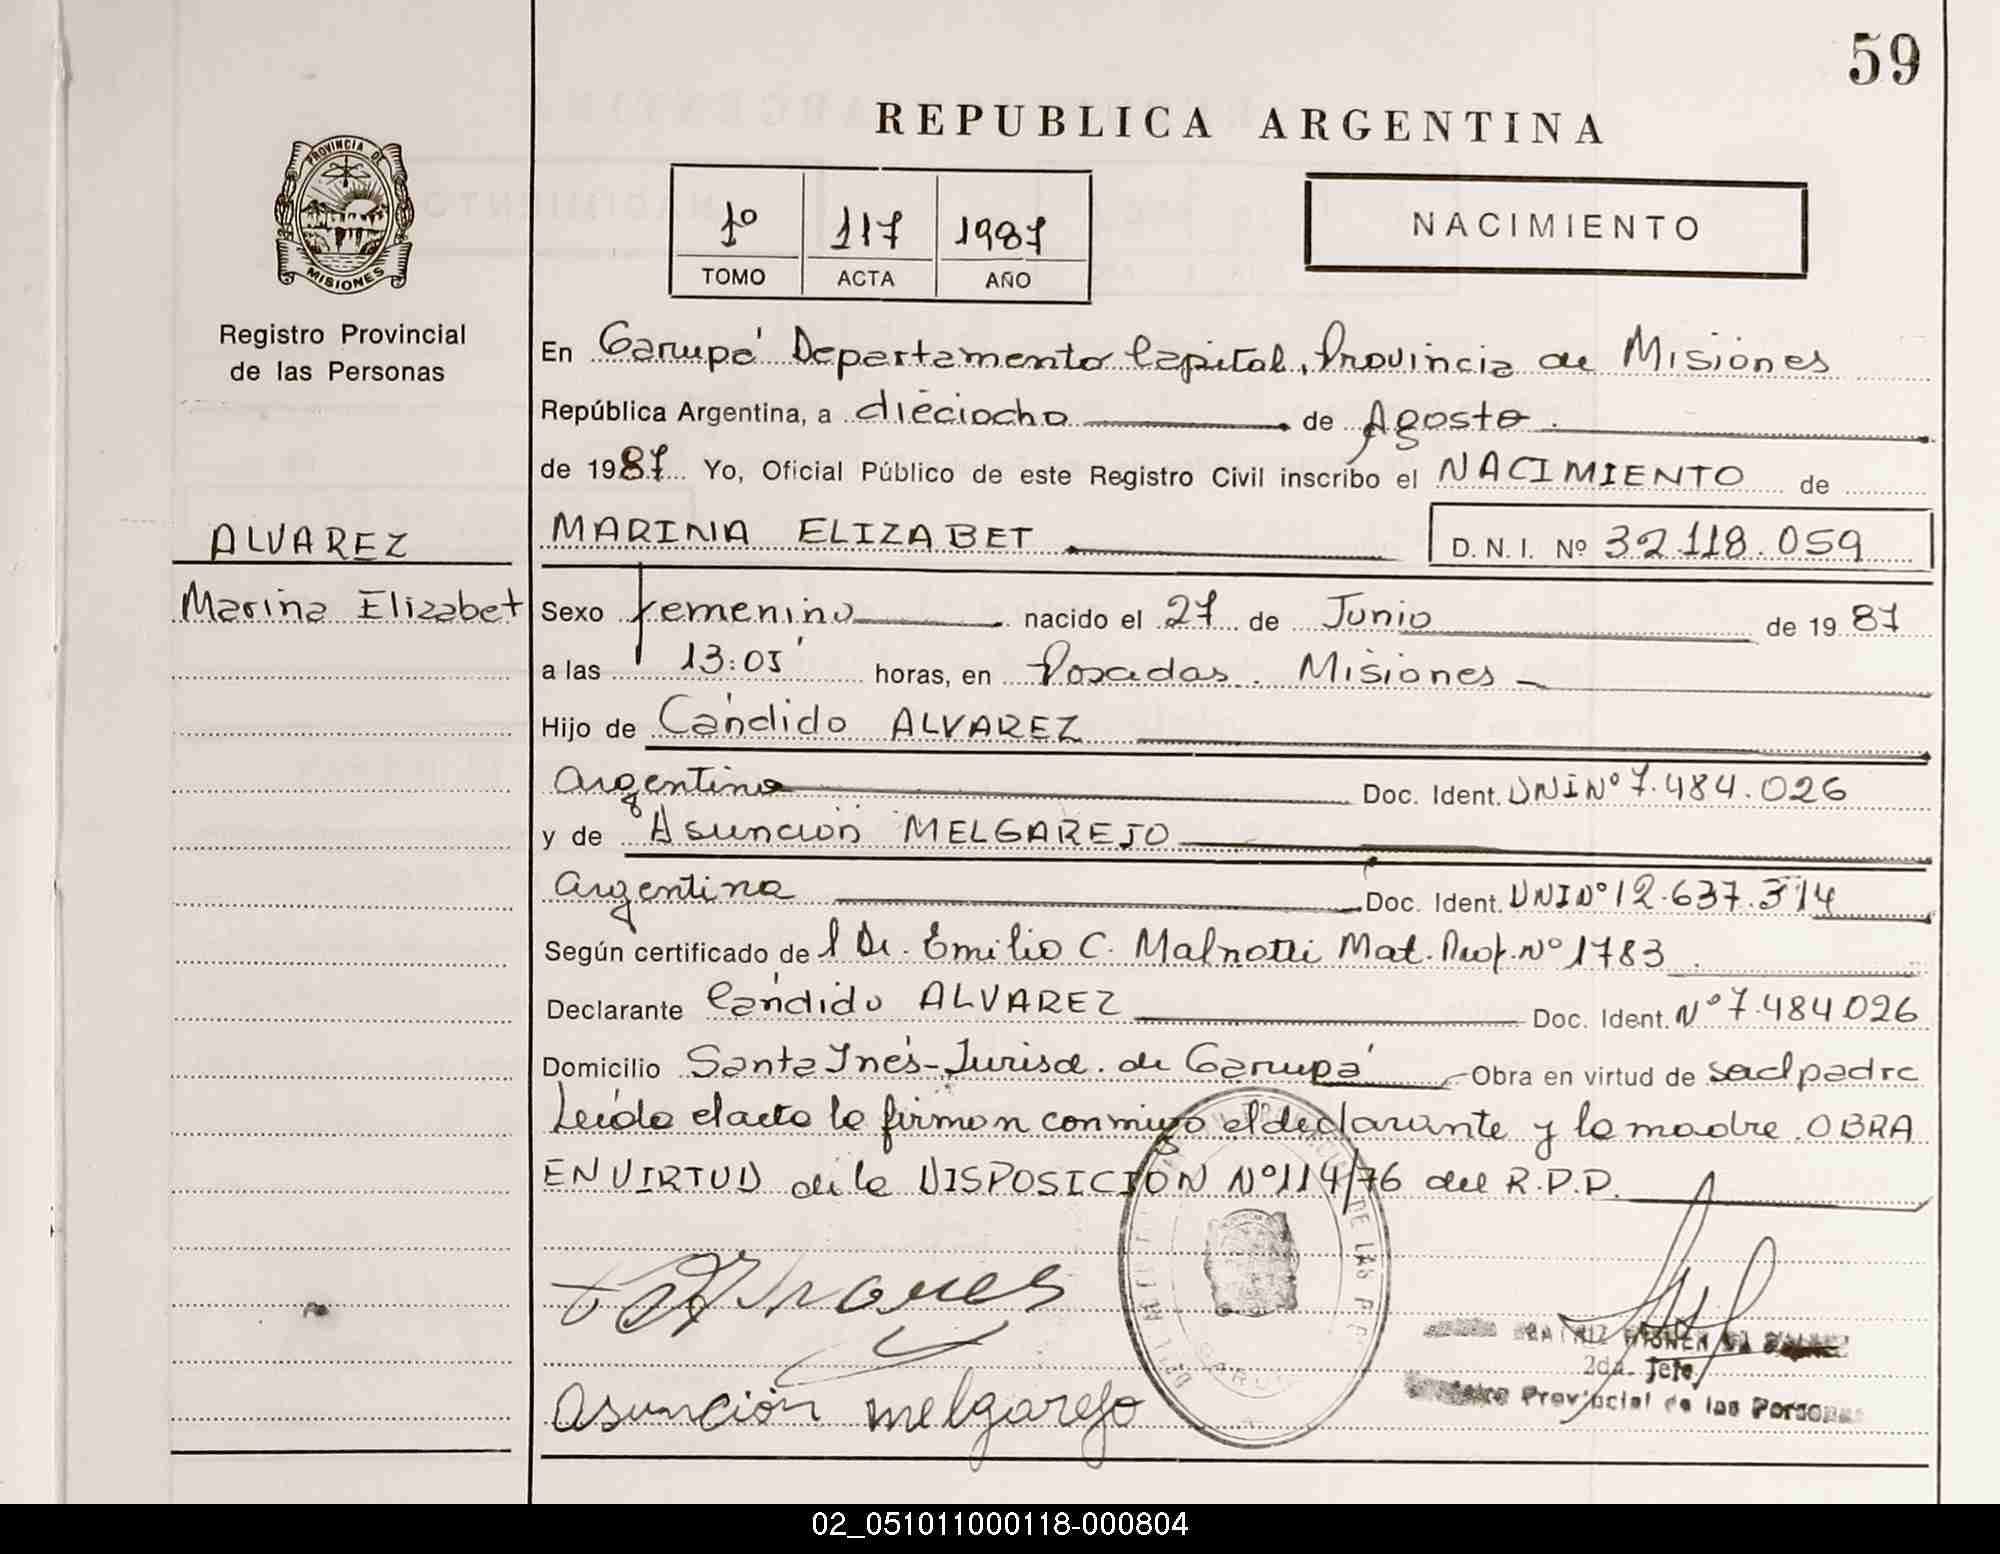 59
REPUBLICA ARGENTINA
PROVINCIA DE
MISIONES
Registro Provincial
de las Personas
1º 117 1987
TOMO ACTA AÑO
NACIMIENTO
En Garupá Departamento Capital, Provincia de Misiones
República Argentina, a dieciocho de Agosto.
de 1987 Yo, Oficial Público de este Registro Civil inscribo el NACIMIENTO de
ALVAREZ
Marina Elizabet
MARINA ELIZABET D. N. I. Nº 32.118.059
Sexo femenino nacido el 27 de Junio de 1987
a las 13:05 horas, en Posadas. Misiones
Hijo de Cándido ALVAREZ
argentino Doc. Ident. DNI Nº 7.484.026
y de Asunción MELGAREJO
argentina Doc. Ident. DNI Nº 12.637.314
Según certificado del Dr. Emilio C. Mat. Prof. Nº 1783
Declarante Cándido ALVAREZ Doc. Ident. Nº 7.484.026
Domicilio Santa Inés - Jurisd. de Garupá Obra en virtud de ser el padre
Leída el acta la firman conmigo el declarante y la madre. OBRA
EN VIRTUD de la DISPOSICIÓN Nº 114/76 del R.P.P.
asunción melgarejo
2da. Jefe
Provincial de las Personas
02_051011000118-000804